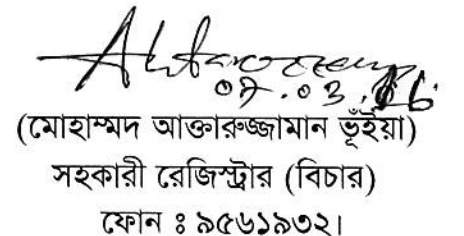 07.03.16
(মোহাম্মদ আক্তারুজ্জামান ভূঁইয়া)
সহকারী রেজিস্ট্রার (বিচার)
ফোন ঃ ৯৫৬১৯৩২।